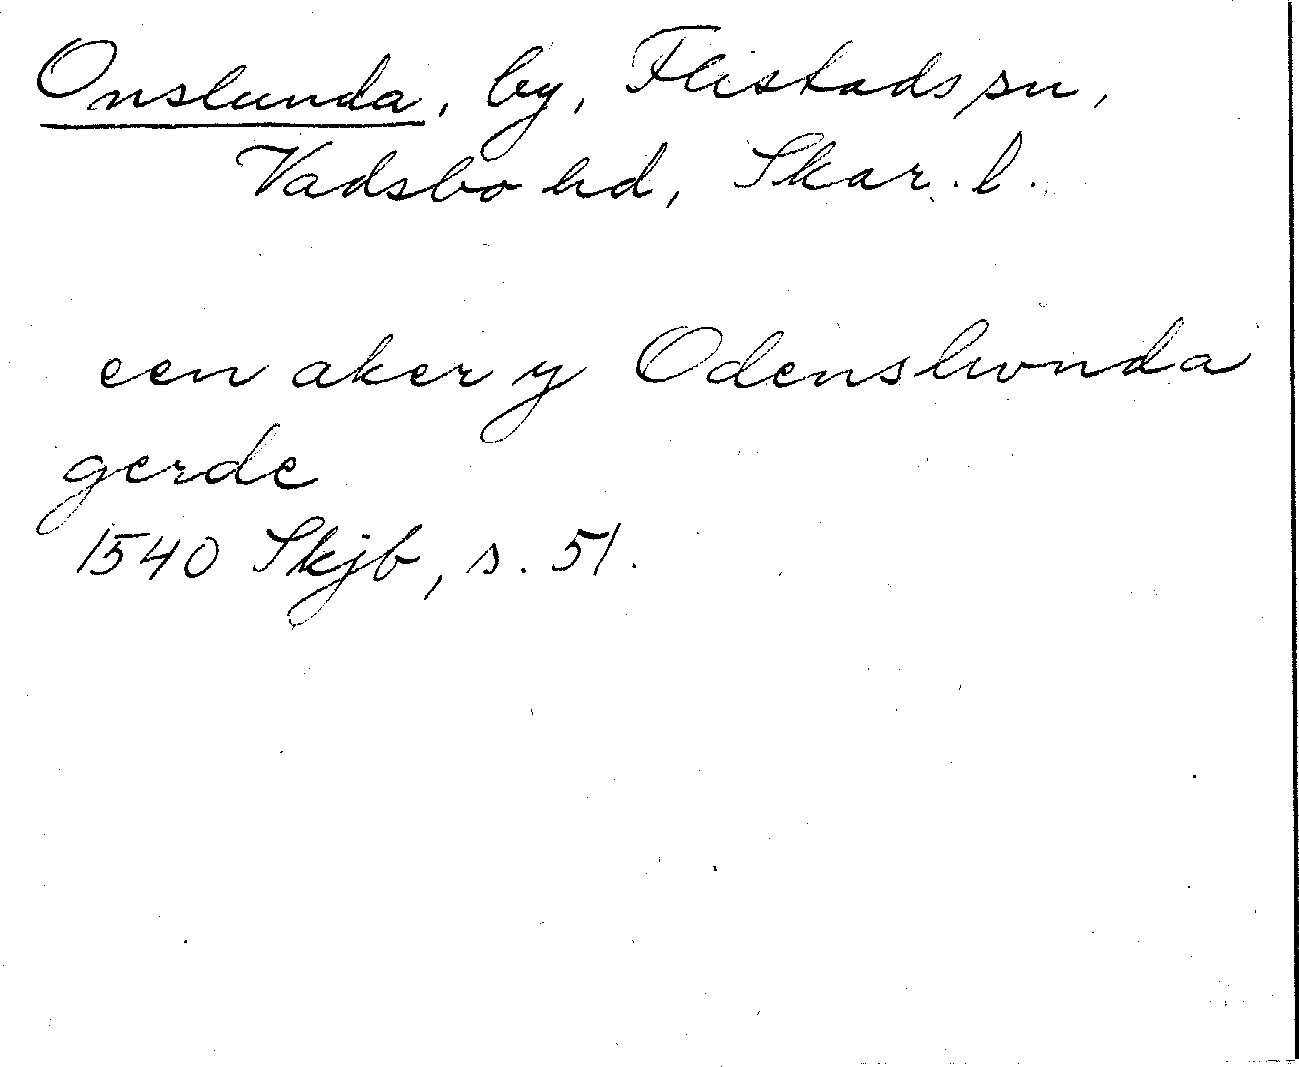 Onslunda, by, Flistads sn,
Vadsbo hd, Skar. l.
een aker y Odenslwnda
gerde
1540 Skjb, s. 51.